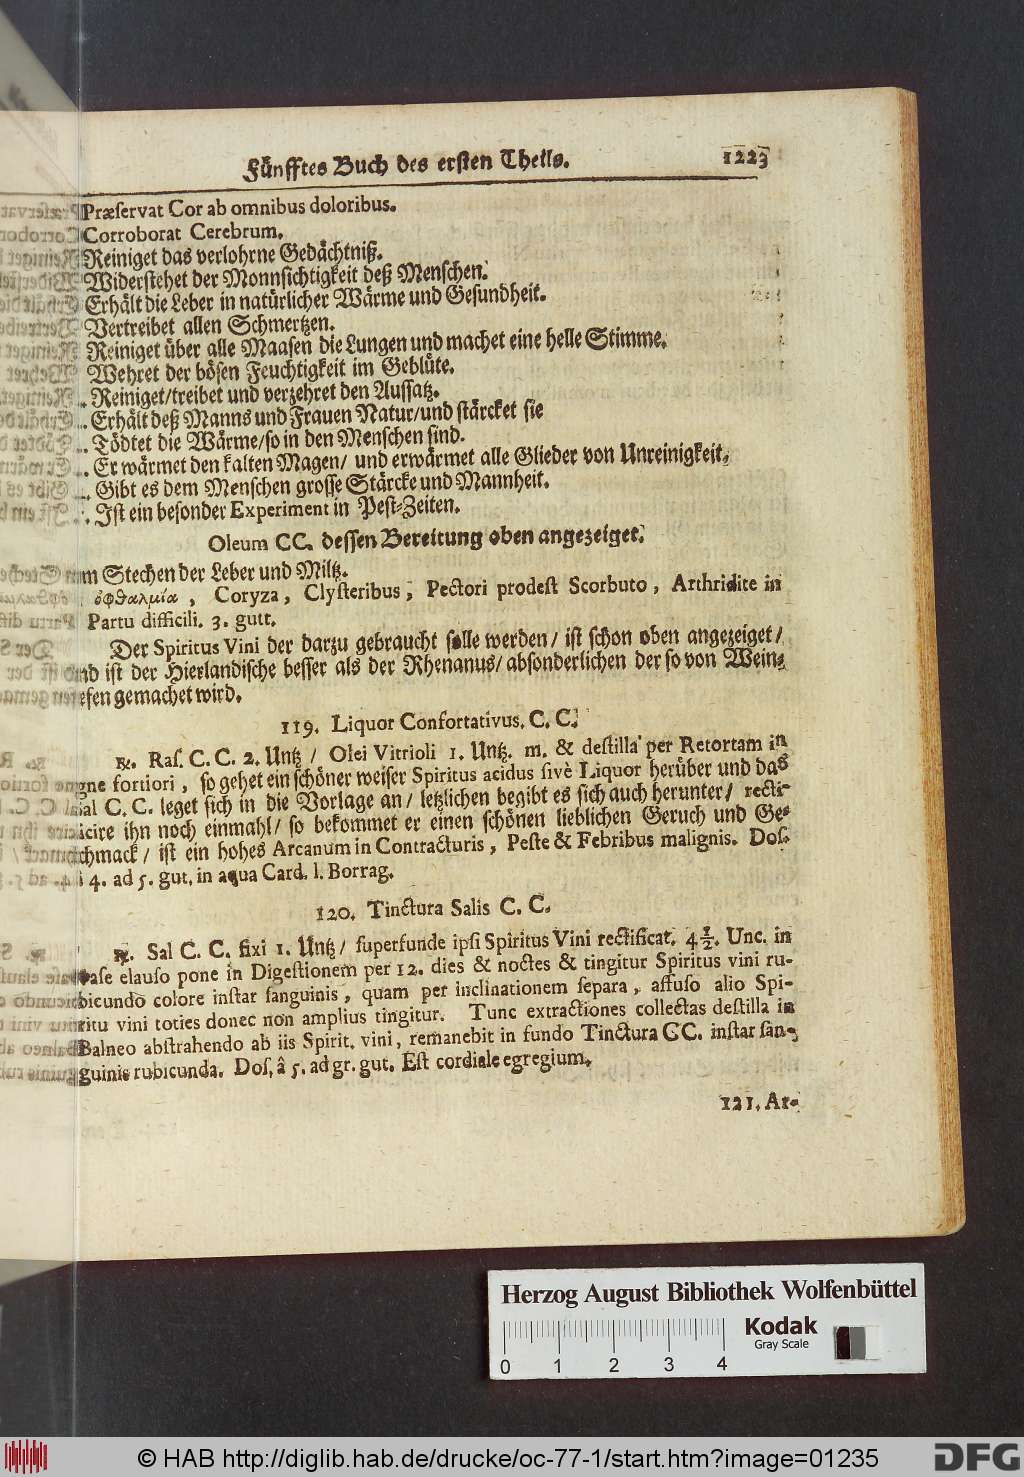 Fünfftes Buch des ersten Theils. 1223
Præservat Cor ab omnibus doloribus.
Corroborat Cerebrum.
Reiniget das verlohrne Gedächtniß.
Widerstehet der Monnsichtigkeit deß Menschen.
Erhält die Leber in natürlicher Wärme und Gesundheit.
Vertreibet allen Schmertzen.
Reiniget über alle Maasen die Lungen und machet eine helle Stimme.
Wehret der bösen Feuchtigkeit im Geblüte.
Reiniget/treibet und verzehret den Aussatz.
Erhält deß Manns und Frauen Natur/und stärcket sie
Tödtet die Wärme/so in den Menschen sind.
Er wärmet den kalten Magen/ und erwärmet alle Glieder von Unreinigkeit.
Gibt es dem Menschen grosse Stärcke und Mannheit.
Ist ein besonder Experiment in Pest-Zeiten.
Oleum CC. dessen Bereitung oben angezeiget.
m Stechen der Leber und Miltz.
ὀφθαλμία, Coryza, Clysteribus, Pectori prodest Scorbuto, Arthridite in
Partu difficili. 3. gutt.
Der Spiritus Vini der darzu gebraucht solle werden/ ist schon oben angezeiget/
nd ist der Hierlandische besser als der Rhenanus/absonderlichen der so von Wein-
efen gemachet wird.
119. Liquor Confortativus. C. C.
℞. Ras. C. C. 2. Untz/ Olei Vitrioli 1. Untz. m. & destilla per Retortam in
gne fortiori, so gehet ein schöner weiser Spiritus acidus sivè Liquor herüber und das
Sal C. C. leget sich in die Vorlage an/ letzlichen begibt es sich auch herunter/ recti-
ficire ihn noch einmahl/ so bekommet er einen schönen lieblichen Geruch und Ge-
schmack/ ist ein hohes Arcanum in Contracturis, Peste & Febribus malignis. Dos.
4. ad 5. gut. in aqua Card. l. Borrag.
120. Tinctura Salis C. C.
℞. Sal C. C. fixi 1. Untz/ superfunde ipsi Spiritus Vini rectificat. 4 1/2. Unc. in
vase clauso pone in Digestionem per 12. dies & noctes & tingitur Spiritus vini ru-
bicundo colore instar sanguinis, quam per inclinationem separa, affuso alio Spi-
ritu vini toties donec non amplius tingitur. Tunc extractiones collectas destilla in
Balneo abstrahendo ab iis Spirit. vini, remanebit in fundo Tinctura CC. instar san-
guinis rubicunda. Dos. â 5. ad gr. gut. Est cordiale egregium.
121. Ar-
Herzog August Bibliothek Wolfenbüttel
Kodak
Gray Scale
0 1 2 3 4
© HAB http://diglib.hab.de/drucke/oc-77-1/start.htm?image=01235
DFG